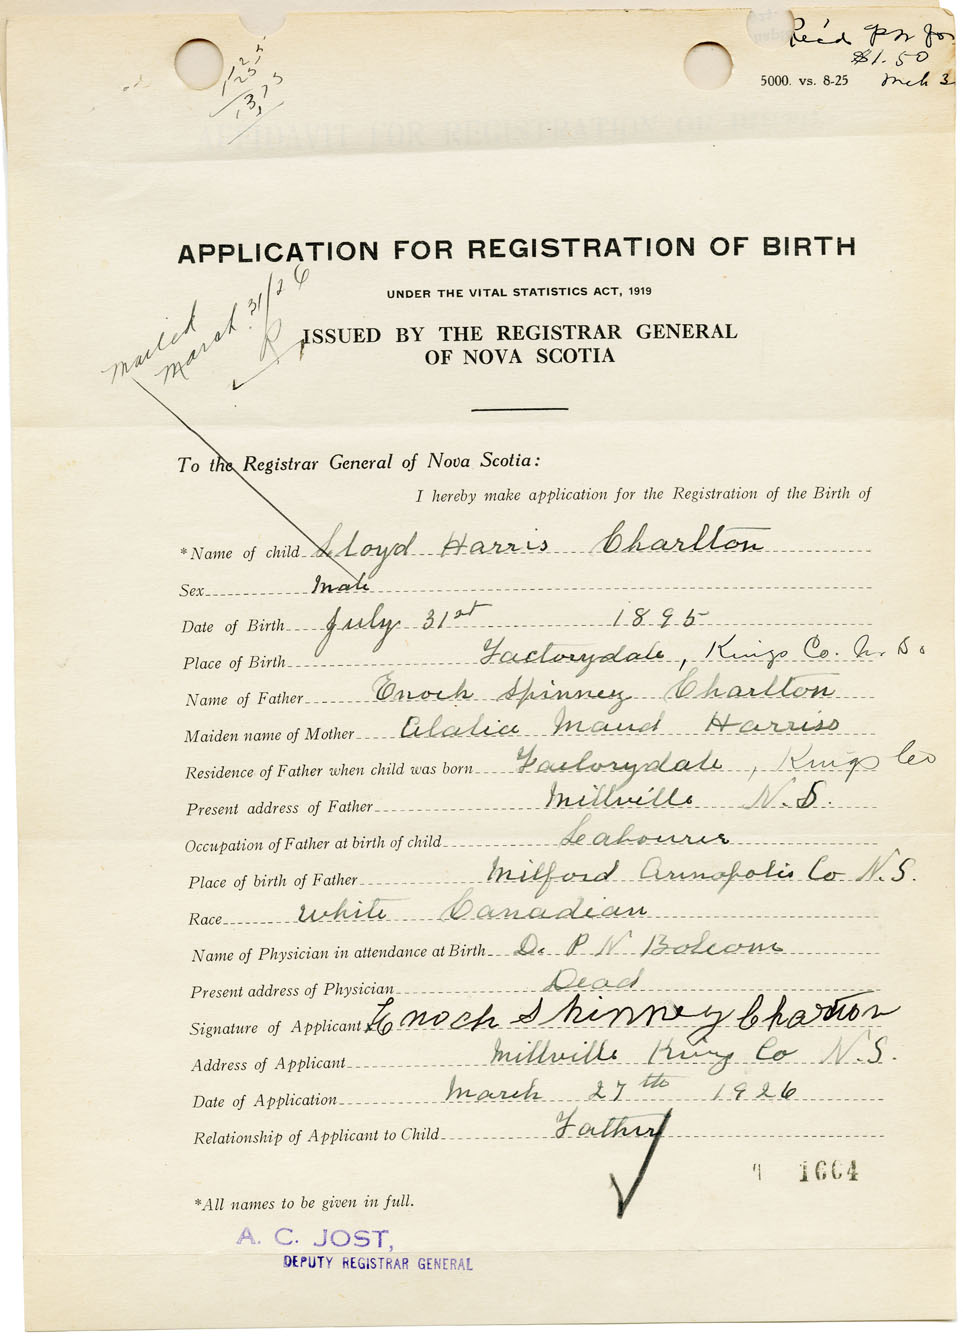 Rec'd
$1.50
5000. vs. 8-25
Mch 3
125
APPLICATION FOR REGISTRATION OF BIRTH
UNDER THE VITAL STATISTICS ACT, 1919
mailed
March 31/26
R
ISSUED BY THE REGISTRAR GENERAL
OF NOVA SCOTIA
To the Registrar General of Nova Scotia:
I hereby make application for the Registration of the Birth of
*Name of child Lloyd Harris Charlton
Sex Male
Date of Birth July 31st 1895
Place of Birth Factorydale, Kings Co. N. S.
Name of Father Enoch Spinney Charlton
Maiden name of Mother Alalia Maud Harriss
Residence of Father when child was born Factorydale, Kings Co
Present address of Father Millville N.S.
Occupation of Father at birth of child Labourer
Place of birth of Father Milford Annapolis Co N.S.
Race White Canadian
Name of Physician in attendance at Birth D. P N Balcom
Present address of Physician Dead
Signature of Applicant Enoch Spinney Charlton
Address of Applicant Millville Kings Co N.S.
Date of Application March 27th 1926
Relationship of Applicant to Child Father
1664
*All names to be given in full.
A. C. JOST,
DEPUTY REGISTRAR GENERAL